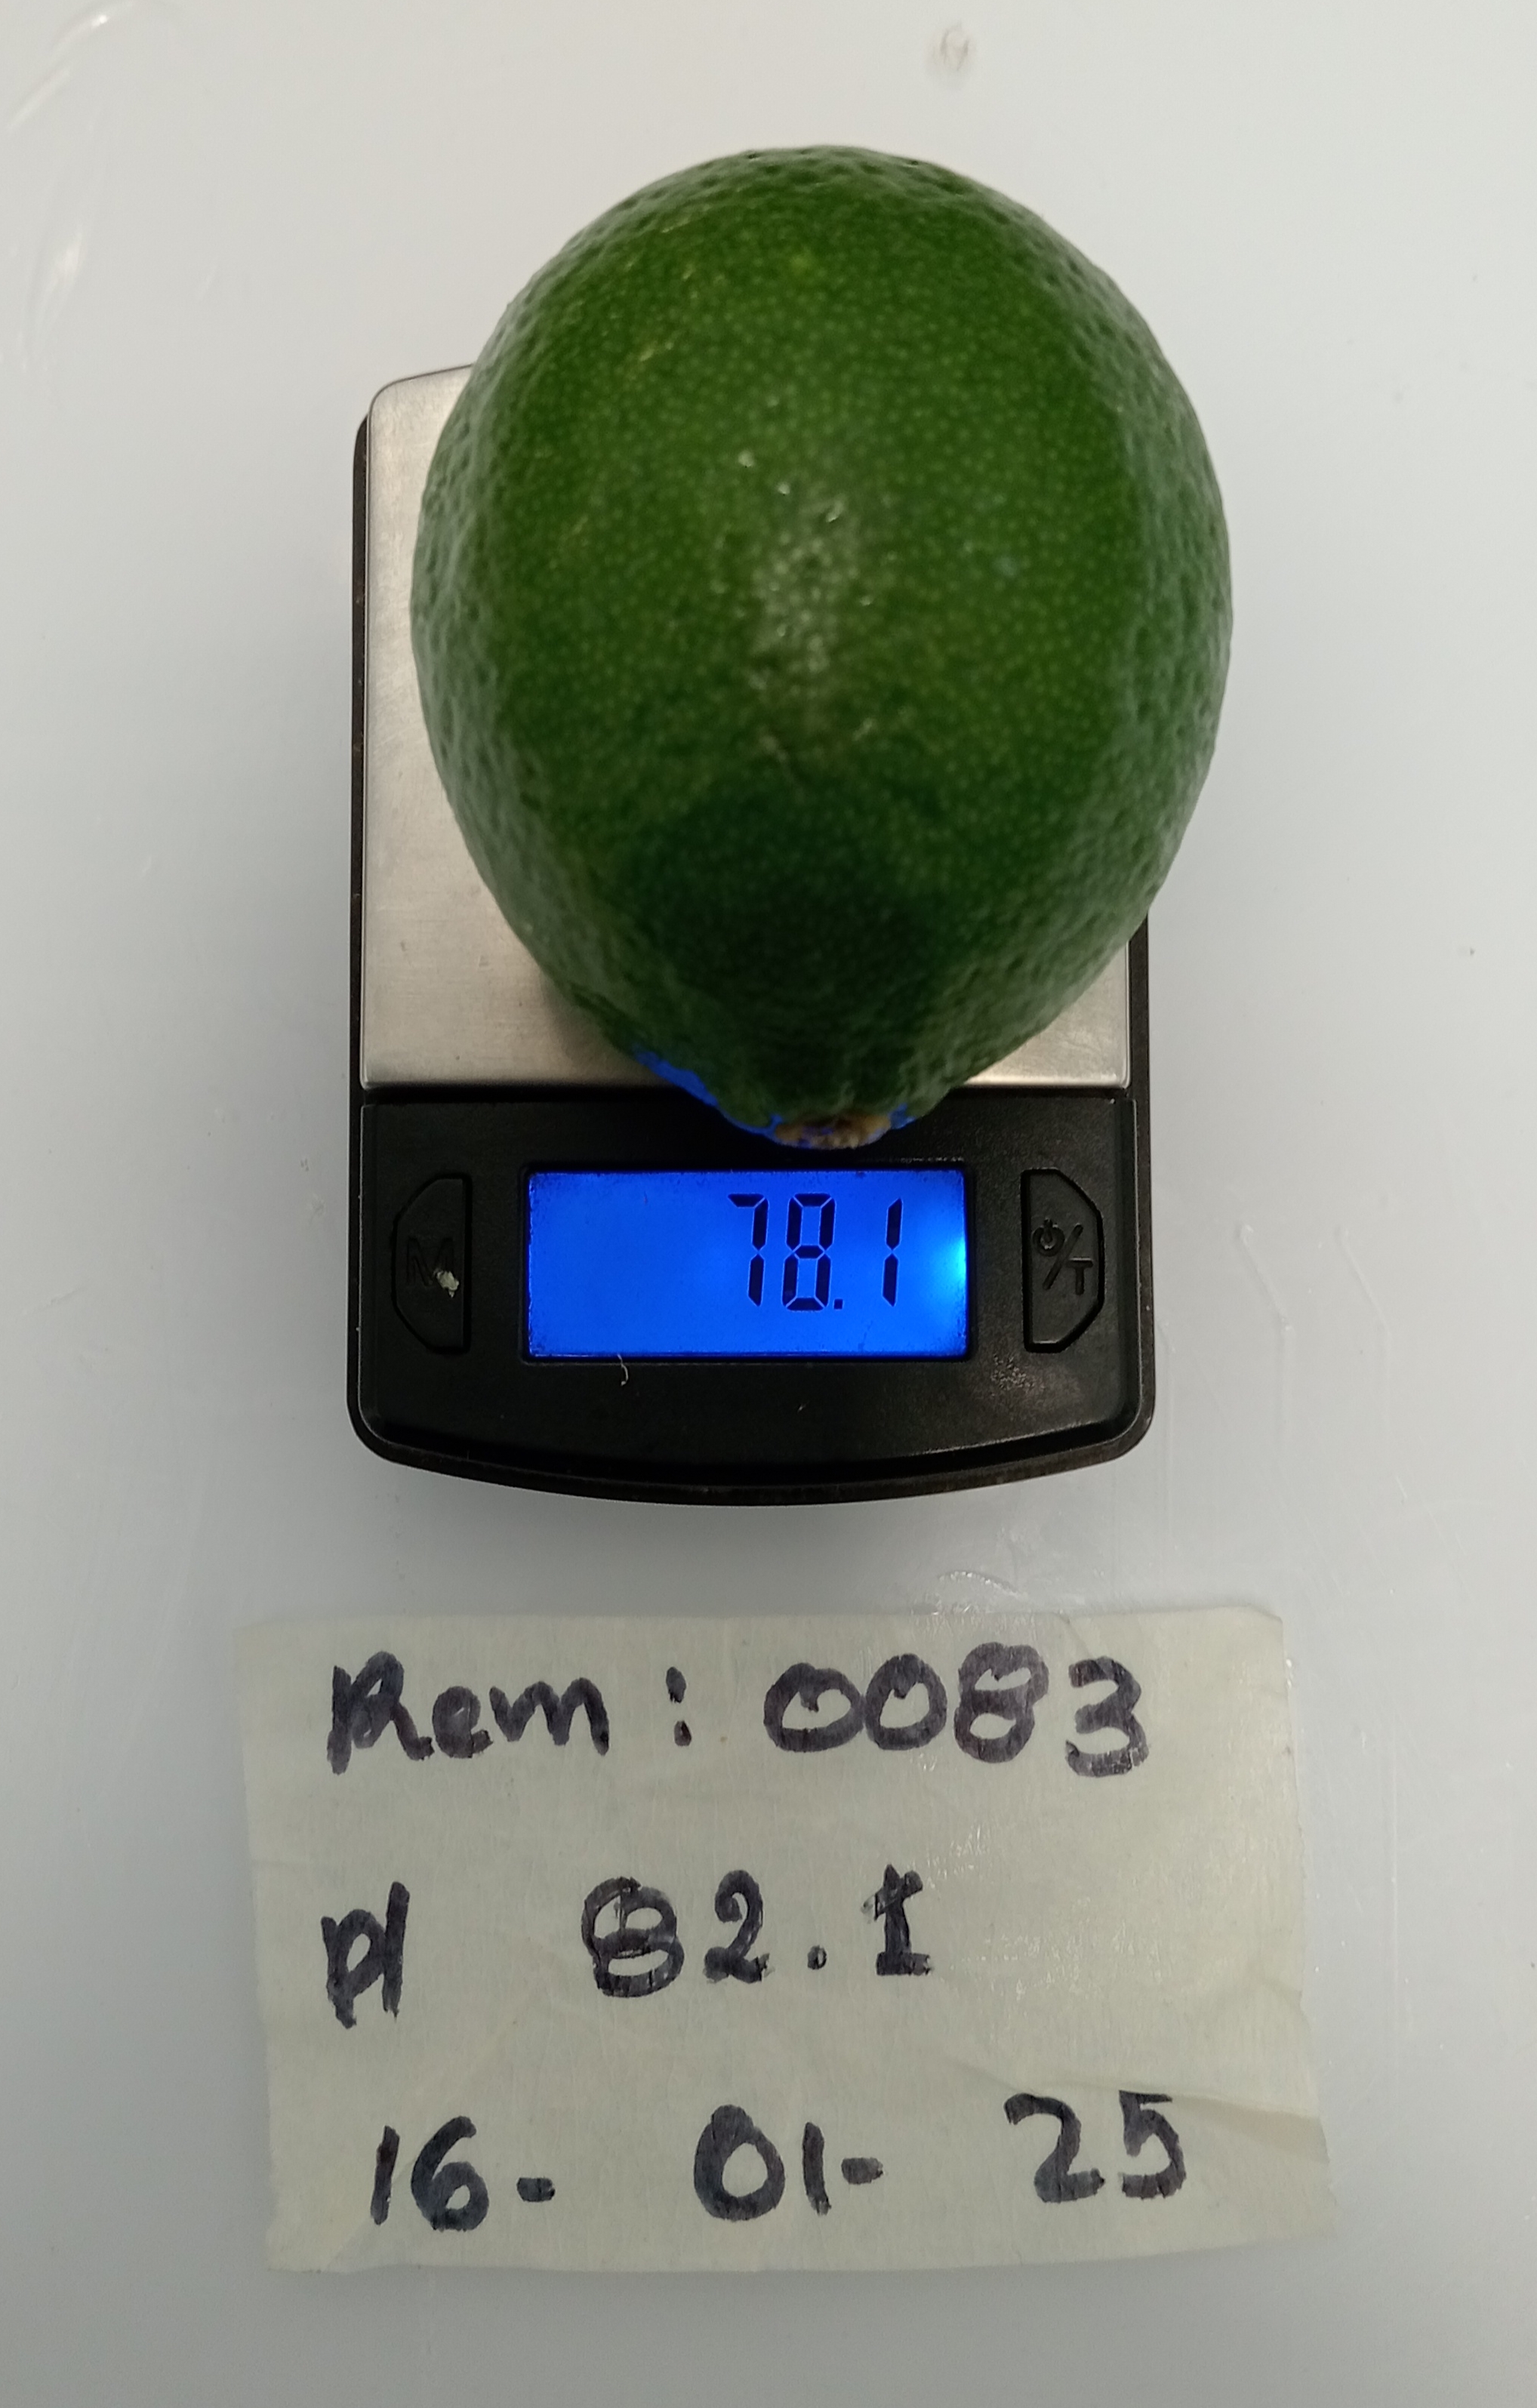 78.1
M
⏻/T
Rem: 0083
pl 82.1
16- 01- 25